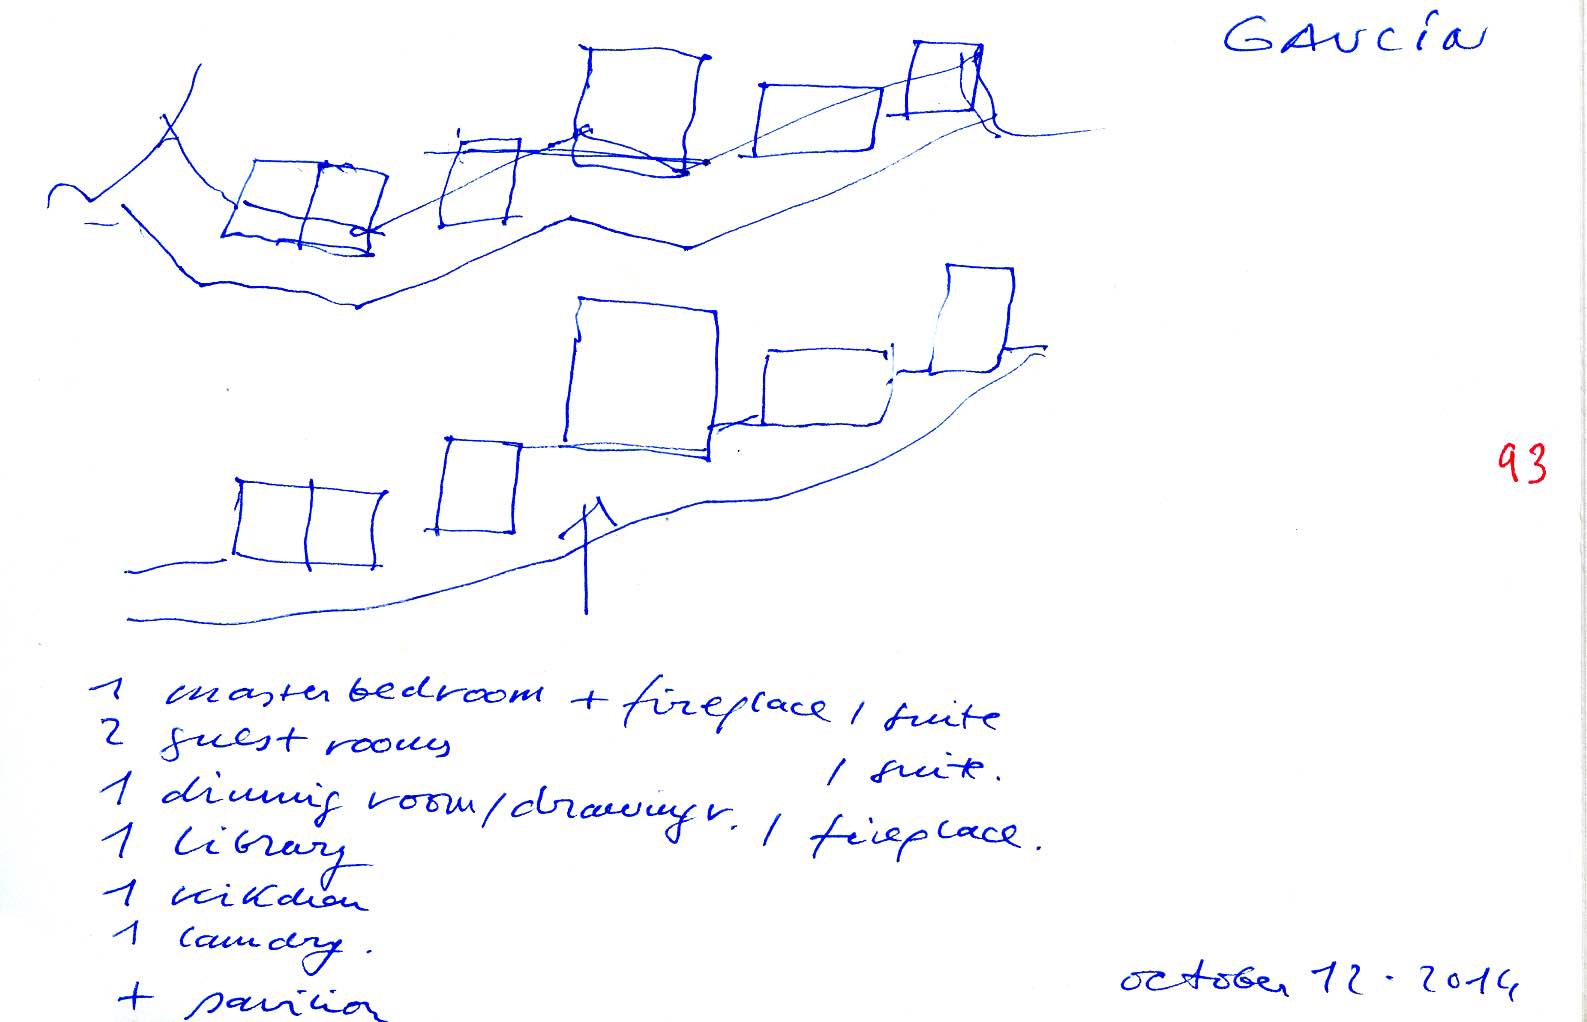 GAUCÍN
93
1 master bedroom + fireplace / suite
2 guest rooms / suite.
1 dinning room / drawing r. / fireplace.
1 library
1 kikchen
1 laundry.
+ pavilion
october 12 · 2014